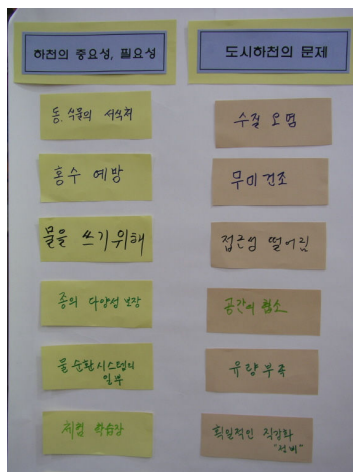 하천의 중요성, 필요성
동.식물의 서식처
홍수 예방
물을 쓰기위해
종의 다양성 보장
물 순환시스템의
일부
체험 학습장
도시하천의 문제
수질 오염
무미건조
접근성 떨어짐
공간이 협소
유량부족
획일적인 직강화
"정비"